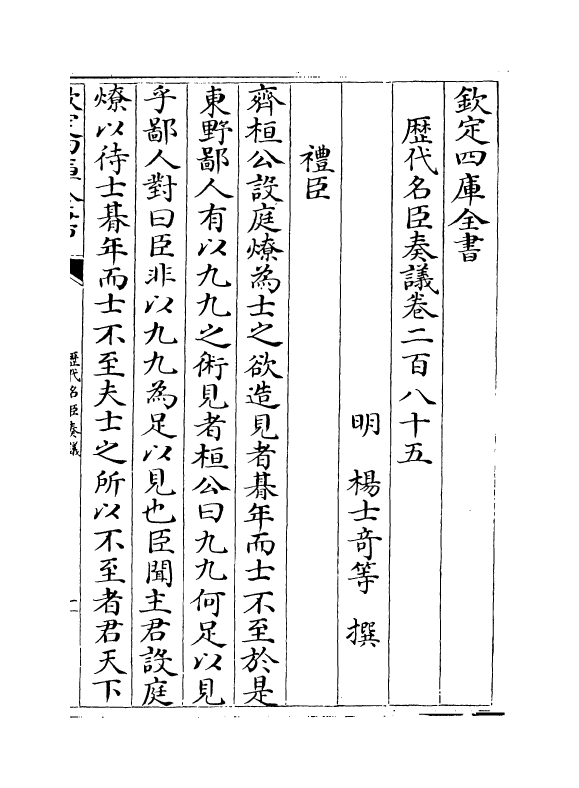 欽定四庫全書
歴代名臣奏議卷二百八十五
明 楊士奇等 撰
禮臣
齊桓公設庭燎為士之欲造見者朞年而士不至於是
東野鄙人有以九九之術見者桓公曰九九何足以見
乎鄙人對曰臣非以九九為足以見也臣聞主君設庭
燎以待士朞年而士不至夫士之所以不至者君天下
欽定四庫全書
歴代名臣奏議